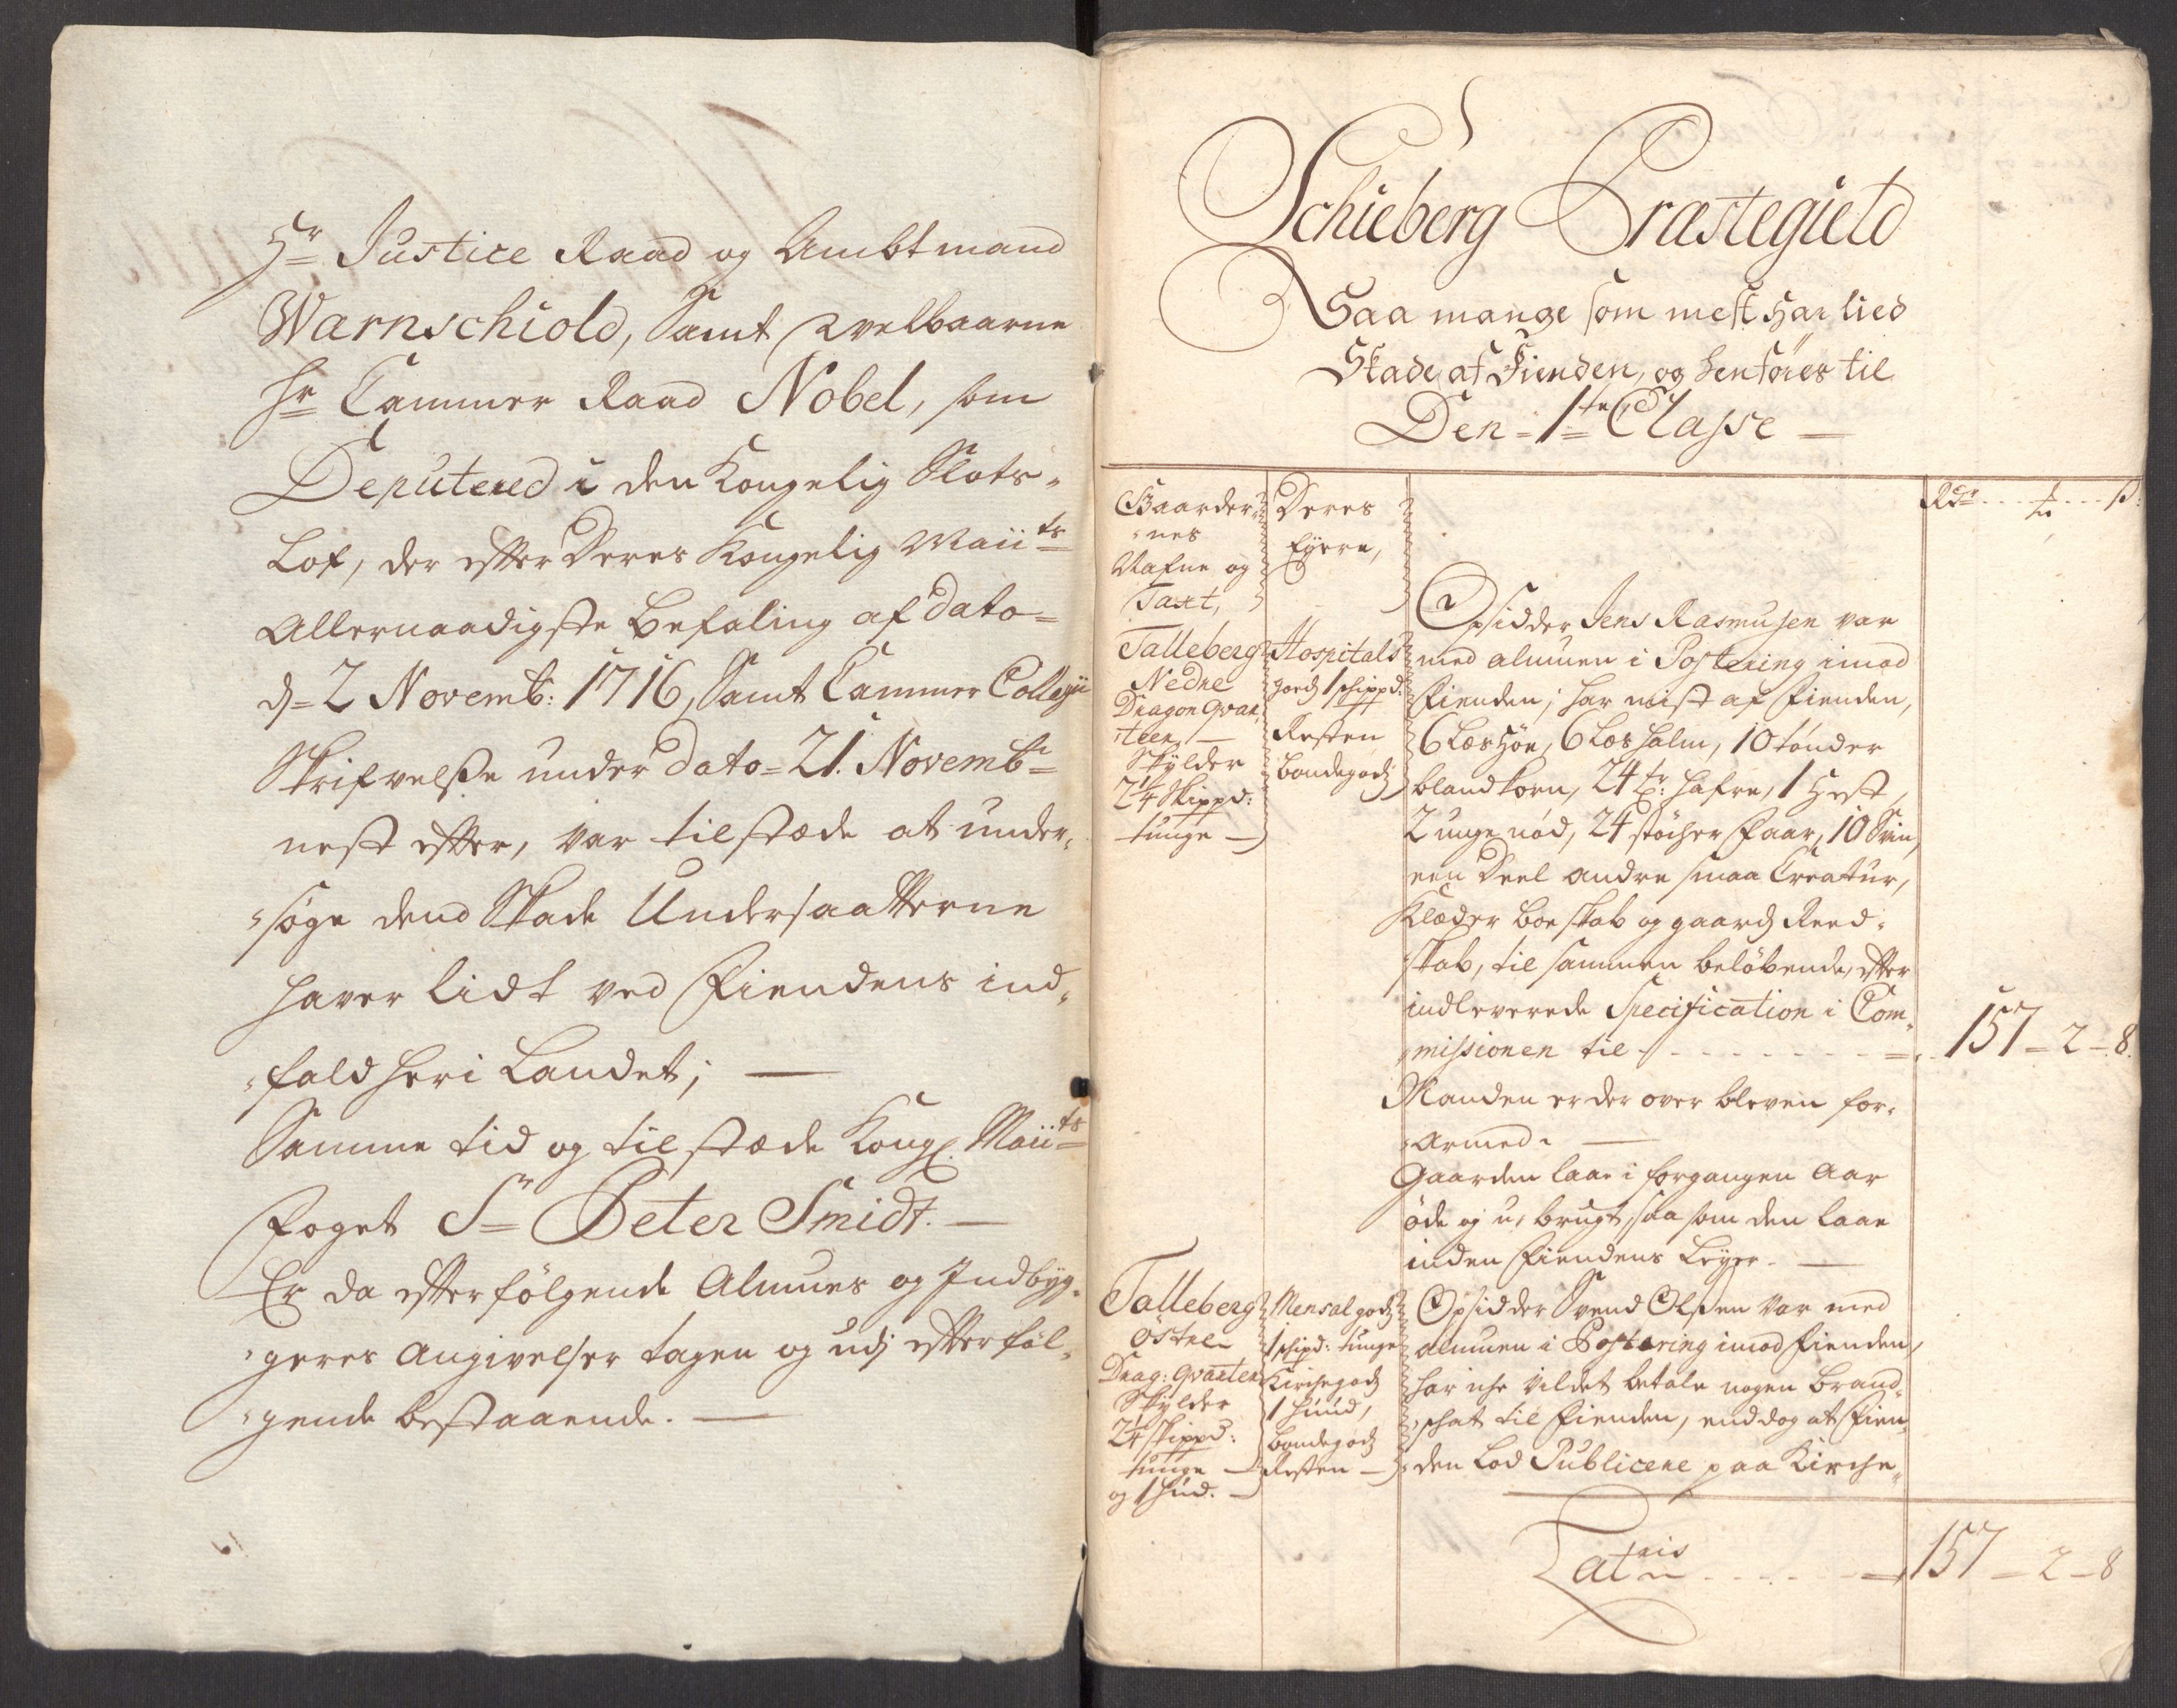 Hr Justice Raad og Ambtmand
Warnschiold, Samt Welbaarne
Hr Cammer Raad Nobel, som
Deputered i den Kongelig Slots-
Lof, der efter Deres Kongelig Maiits
Allernaadigste Befaling af dato
d= 2 Novemb: 1716, Samt Cammer Collegii
Skrifvelsse under dato= 21. Novembr
nest efter, var tilstæde at under-
søge dend Skade Undersaatterne
hafver lidt ved Fiendens ind-
fald her i Landet; —
Samme tid og tilstæde Kongl. Maiits
Foget Sr Peter Smidt. —
Er da efterfölgende Almues og Indbyg-
geres angivelser tagen og udj efterföl-
gende bestaaende. —
Schieberg Præstegield
Saa mange som mest har lied
Skade af Fienden, og henföres til
Den 1te Classe —
Gaarder-
nes
Nafne og
Taxt,
Deres
Eyere,
Rdr ß:
Talleberg
Nedre
Dragon Qvar-
teer, —
Skylder
2¼ Skippd:
tunge —
Hospitals
gods 1 schippd:
Resten
bondegods
Opsidder Jens Rasmusen var
med almuen i Postering imod
Fienden; har mist af Fienden,
6 Læs Höe, 6 Læs halm, 10 tönder
blandkorn, 24 tr: hafre, 1 Hest,
2 unge nöd, 24 støcher Faar, 10 Svin,
een Deel andre smaa Creatur,
Klæder boeskab og gaards Reed-
skab, til sammen belöbende, efter
indleverede Specification i Com-
missionen til - - - 157 - 2 - 8.
Manden er der over bleven for-
armed. —
Gaarden laae i forgangen Aar
öde og u-brugt, saa som den laae
inden Fiendens Leyer. —
Talleberg
östre
Drag: Qvarteer
Skylder
2¼ Skippd:
tunge —
og 1 hud. —
Mensal gods
1 schipd: tunge
Kirchegods
1 huud,
bondegods
Resten —
Opsidder Svend Olsen var med
almuen i Postering imod Fienden,
har iche vildet betale nogen brand-
schat til Fienden, enddog at Fien-
den lod Publicere paa Kirche-
Lateris - - - 157 - 2 - 8